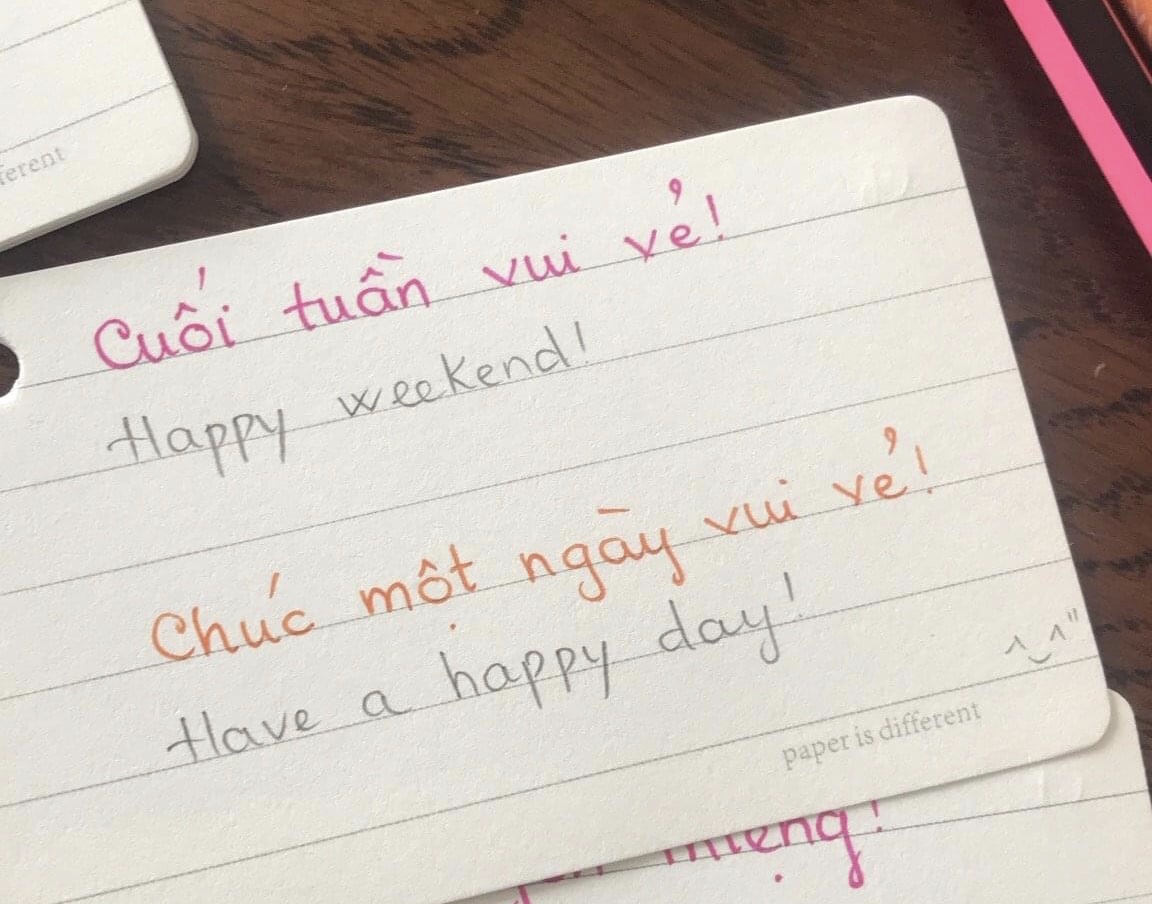 ferent
Cuối tuần vui vẻ!
Happy weekend!
Chúc một ngày vui vẻ!
Have a happy day!
^‿^"
paper is different
miệng!